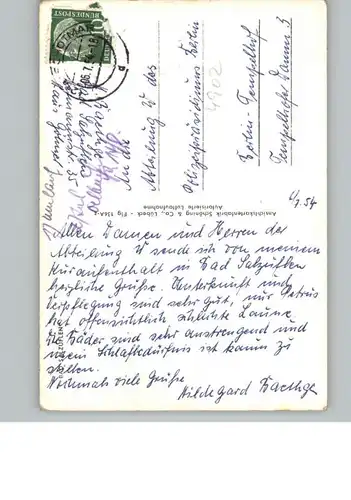 DEUTSCHE
BUNDESPOST
An die
Abteilung W des
Polizeipräsidiums Berlin
Berlin-Tempelhof
Tempelhofer Damm 3
4902
Umlauf
Ansichtskartenfabrik Schöning & Co., Lübeck
Autorisierte Luftaufnahme
7.54
Allen Damen und Herren der
Abteilung W sende ich von meinem
Kuraufenthalt in Bad Salzuflen
herzliche Grüße. Unterkunft und
Verpflegung sind sehr gut, nur Petrus
hat offensichtlich schlechte Laune.
Die Bäder sind sehr anstrengend und
mein Schlafbedürfnis ist kaum zu
stillen.
Nochmals viele Grüße
Hildegard Baethge